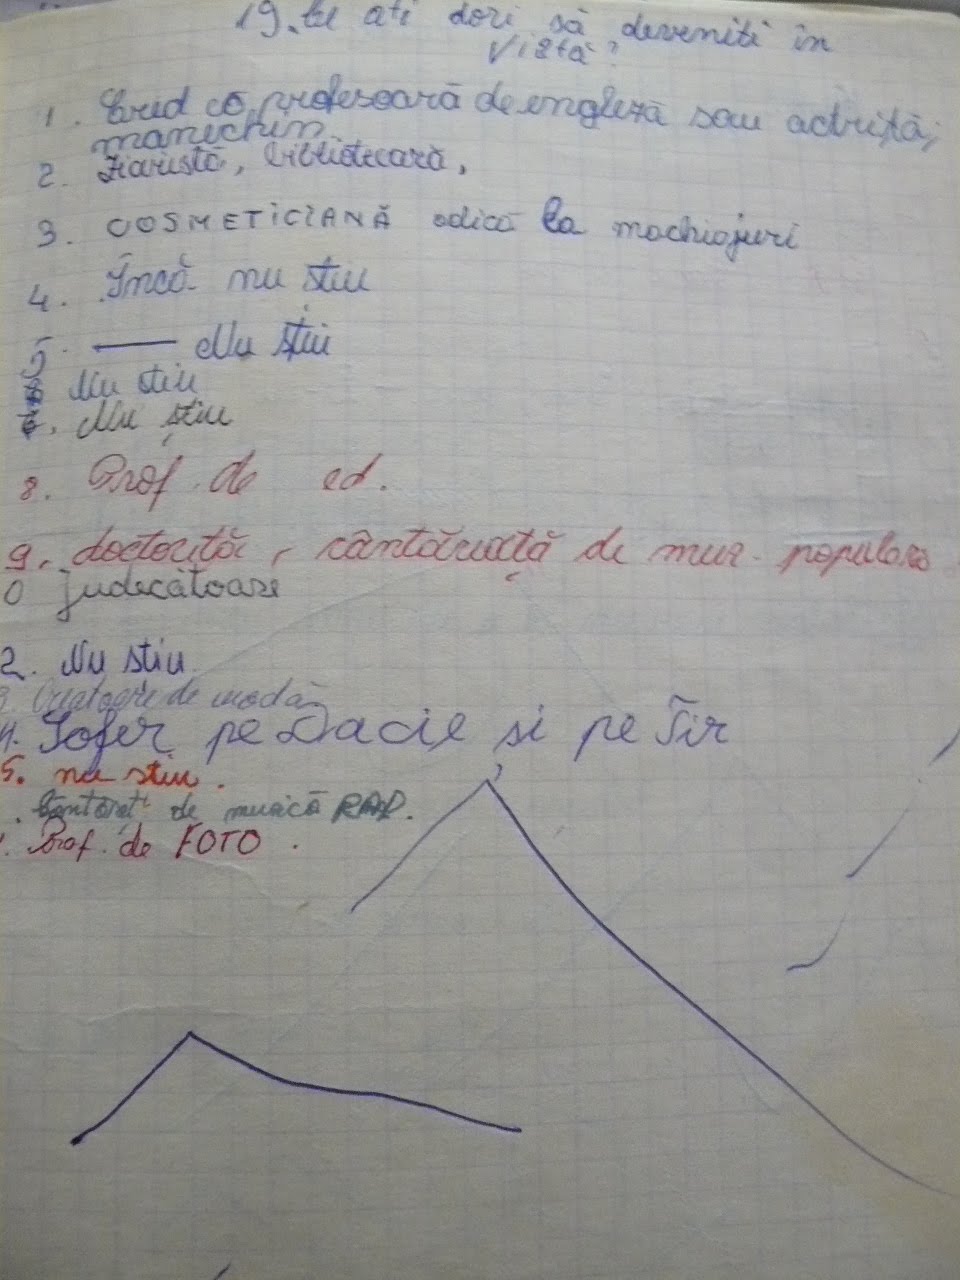 19. Ce ati dori să deveniti în
viată?
1. Cred că profesoară de engleză sau actriță,
manechin.
2. Ziaristă, bibliotecară,
3. COSMETICIANĂ adică la machiajuri
4. Încă nu stiu
5. — Nu știu
Nu stiu
7. Nu știu
8. Prof. de ed.
9. doctorită, cântăreață de muz. populara
0 judecatoare
2. Nu stiu
3. Creatoare de modă
4. Șofer pe Dacie și pe Tir
5. nu stiu.
. Cântăreț de muzică RAP.
. Prof. de FOTO.